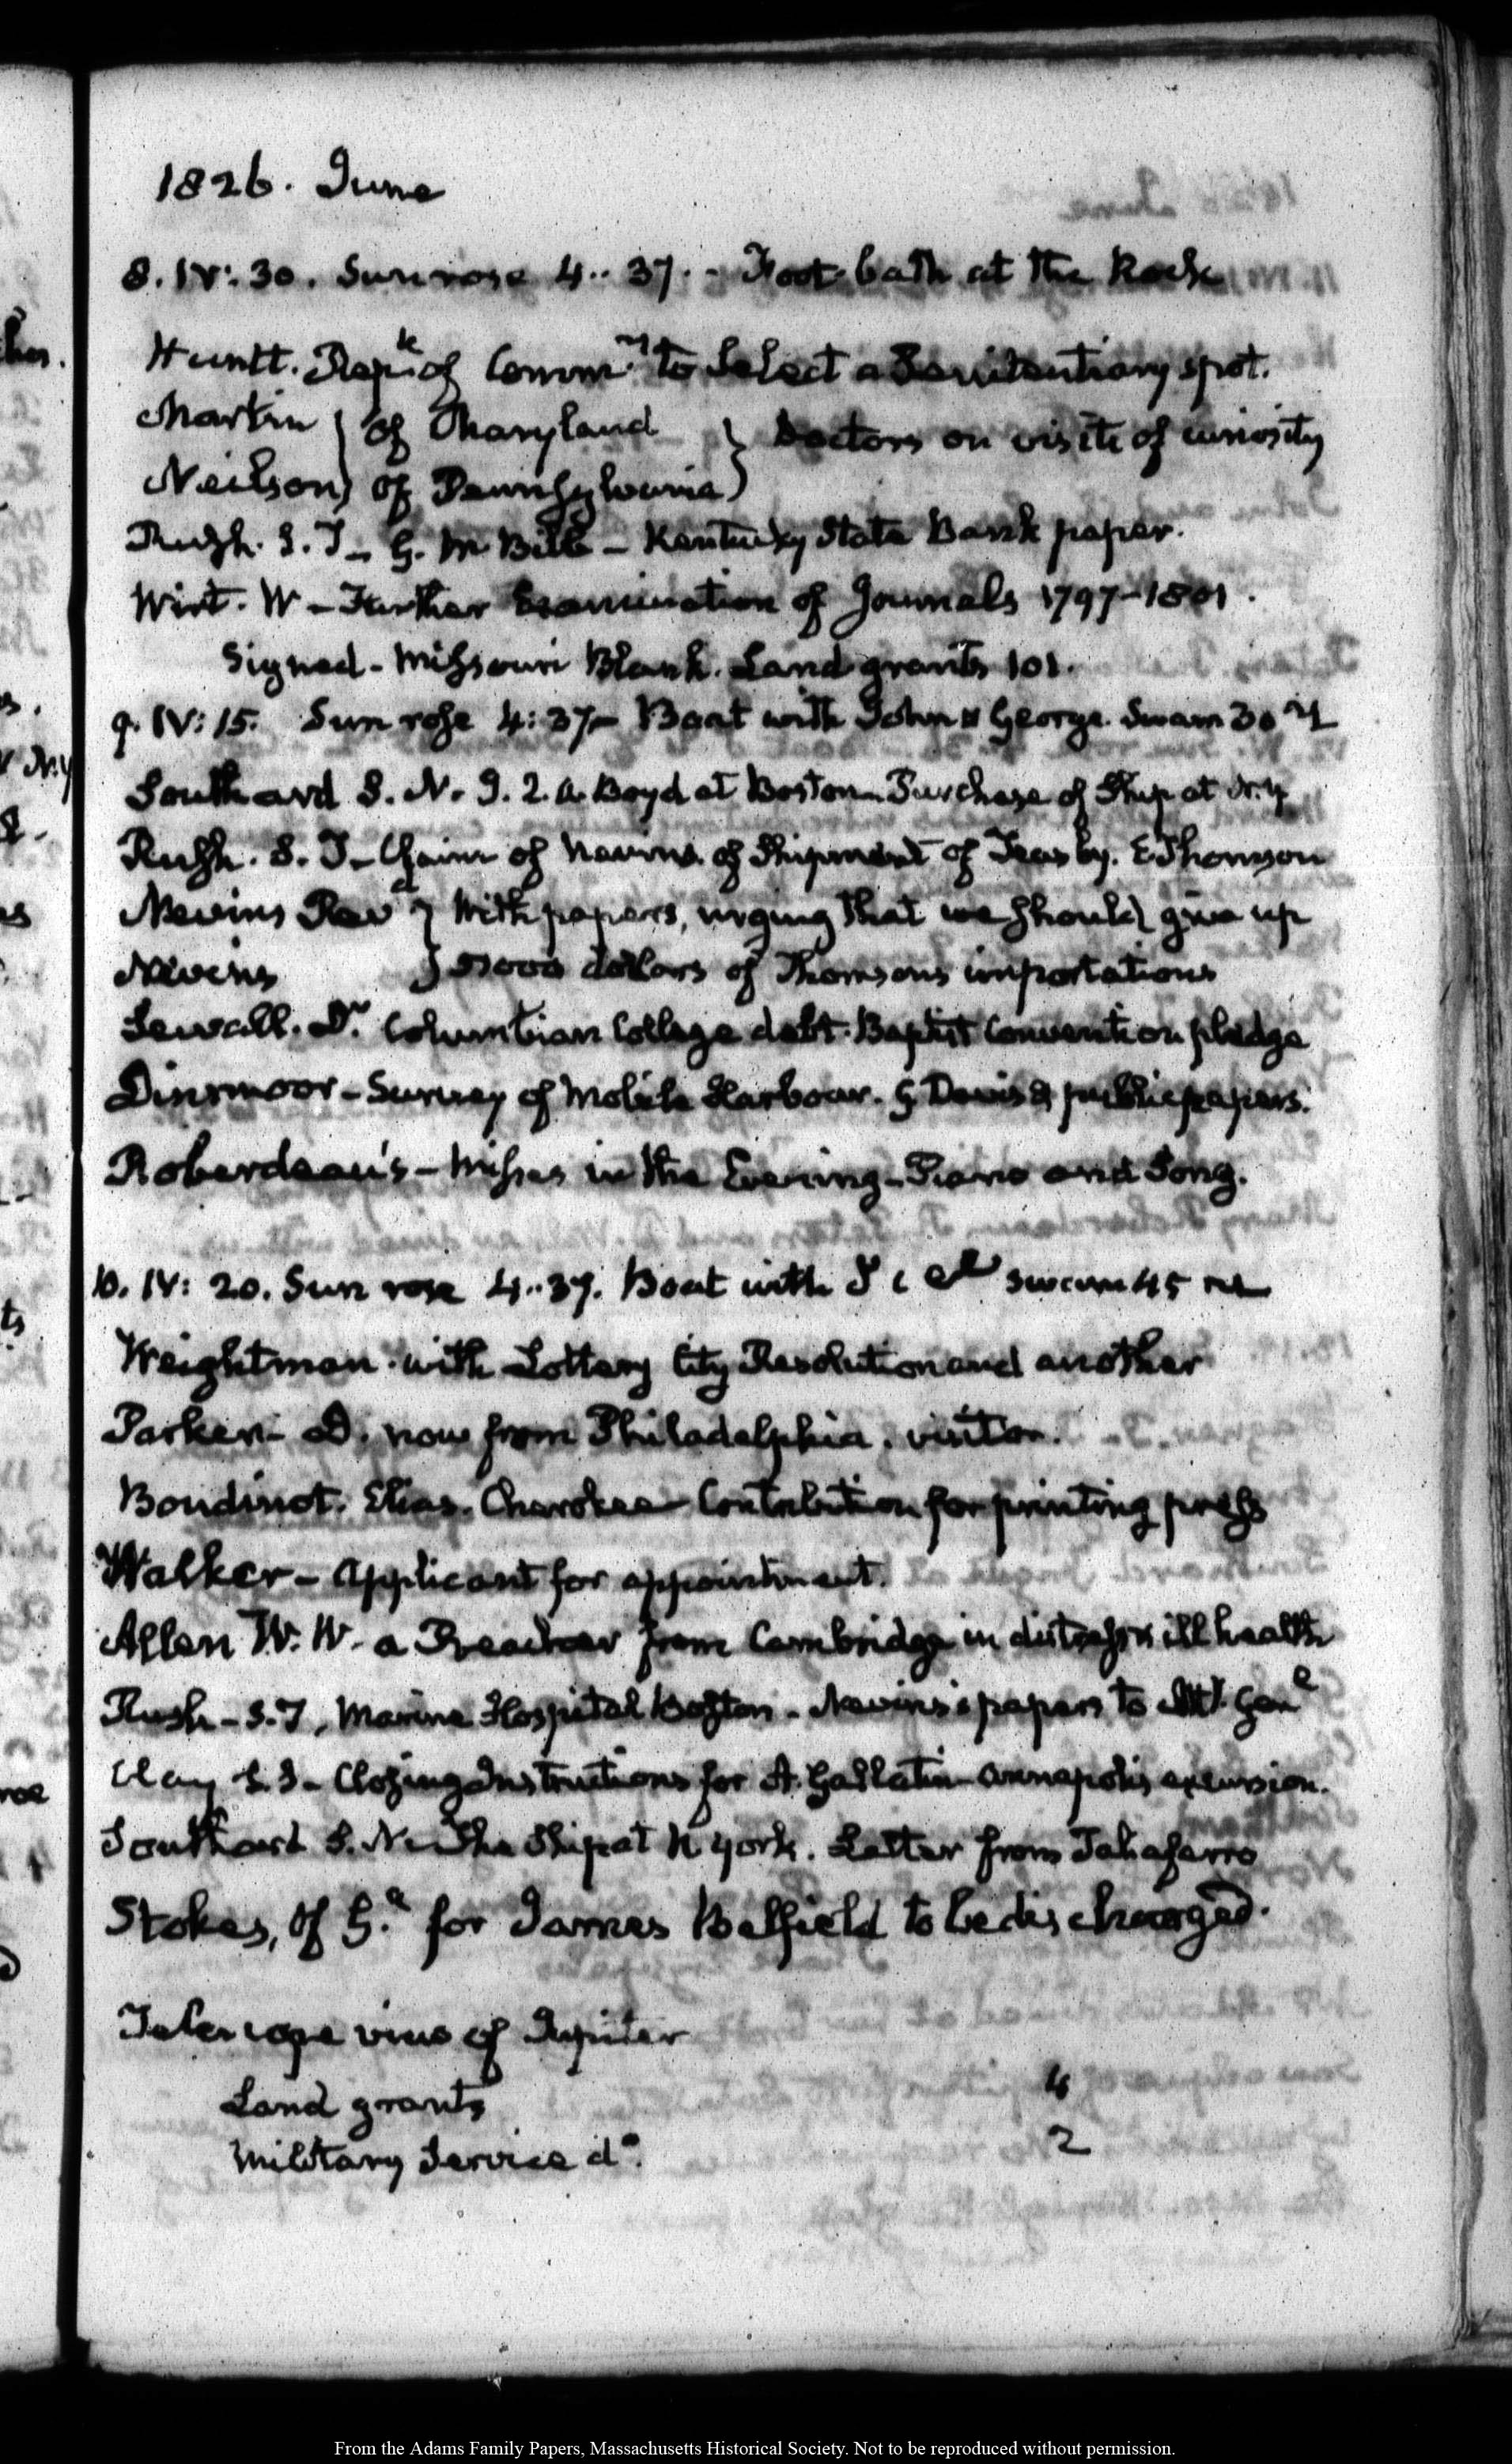 1826. June
8. IV: 30. Sun rose 4..37. - Foot bath at the Rock
Huntt. of Commrs to Select a Penitentiary spot.
Martin } of Maryland } Doctors on visits of curiosity
Neilson } of Pennsylvania }
Rush. S. T - G. M. Bibb - Kentucky State Bank paper.
Wirt. W - Further Examination of Journals 1797-1801.
Signed - Missouri Blank. Land grants 101.
9. IV: 15. Sun rose 4: 37 - Boat with John & George. Swam 30
Southard S. N. Boyd at Boston - Purchase of Ship at N. Y
Rush. S. T - Claim of Nevins of Shipment of Teas by. E Thomson
Nevins Revd } with papers, urging that we should give up
Nevins } dollars of Thomsons importations
Sewall. Dr. Columbian College debt. Baptist Convention pledge
Dinsmoor - Survey of Mobile Harbour. G Davis's public papers.
Roberdeau's - Misses in the Evening - Piano and Song.
10. IV: 20. Sun rose 4..37. Boat with swam 45
Weightman with Lottery City Resolution and another
Parker - D. now from Philadelphia. visitor.
Boudinot. Elias. Cherokee Contribution for printing press
Walker - Applicant for appointment.
Allen W. W. a Preacher from Cambridge in distress & ill health
Rush - S. T, Marine Hospital Boston - Nevins's papers to Att. Genl
Clay S. S - Closing Instructions for A. Gallatin - Annapolis excursion.
Southard S. N - The Ship at N York. Letter from Taliaferro
Stokes, of Ga for James Belfield to be discharged.
Telescope view of Jupiter
Land grants 4
Military Service do. 2
From the Adams Family Papers, Massachusetts Historical Society. Not to be reproduced without permission.